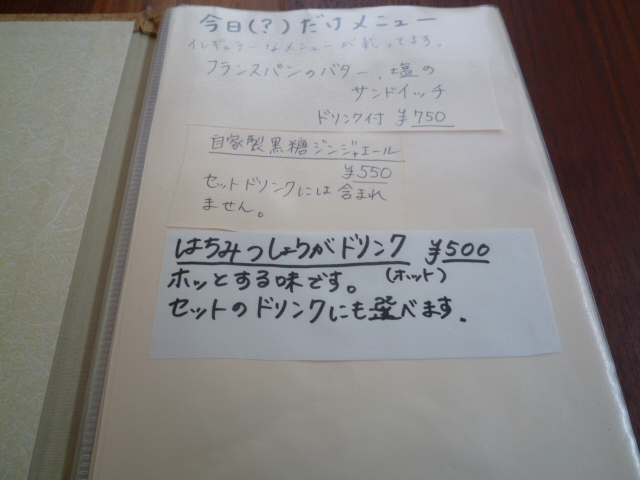 今日(?)だけメニュー
イレギュラーなメニューが載ってます。
フランスパンのバター、塩の
サンドイッチ
ドリンク付 ¥750
自家製黒糖ジンジャエール
¥550
セットドリンクには含まれ
ません。
はちみつしょうがドリンク ¥500
ホッとする味です。 (ホット)
セットのドリンクにも選べます.